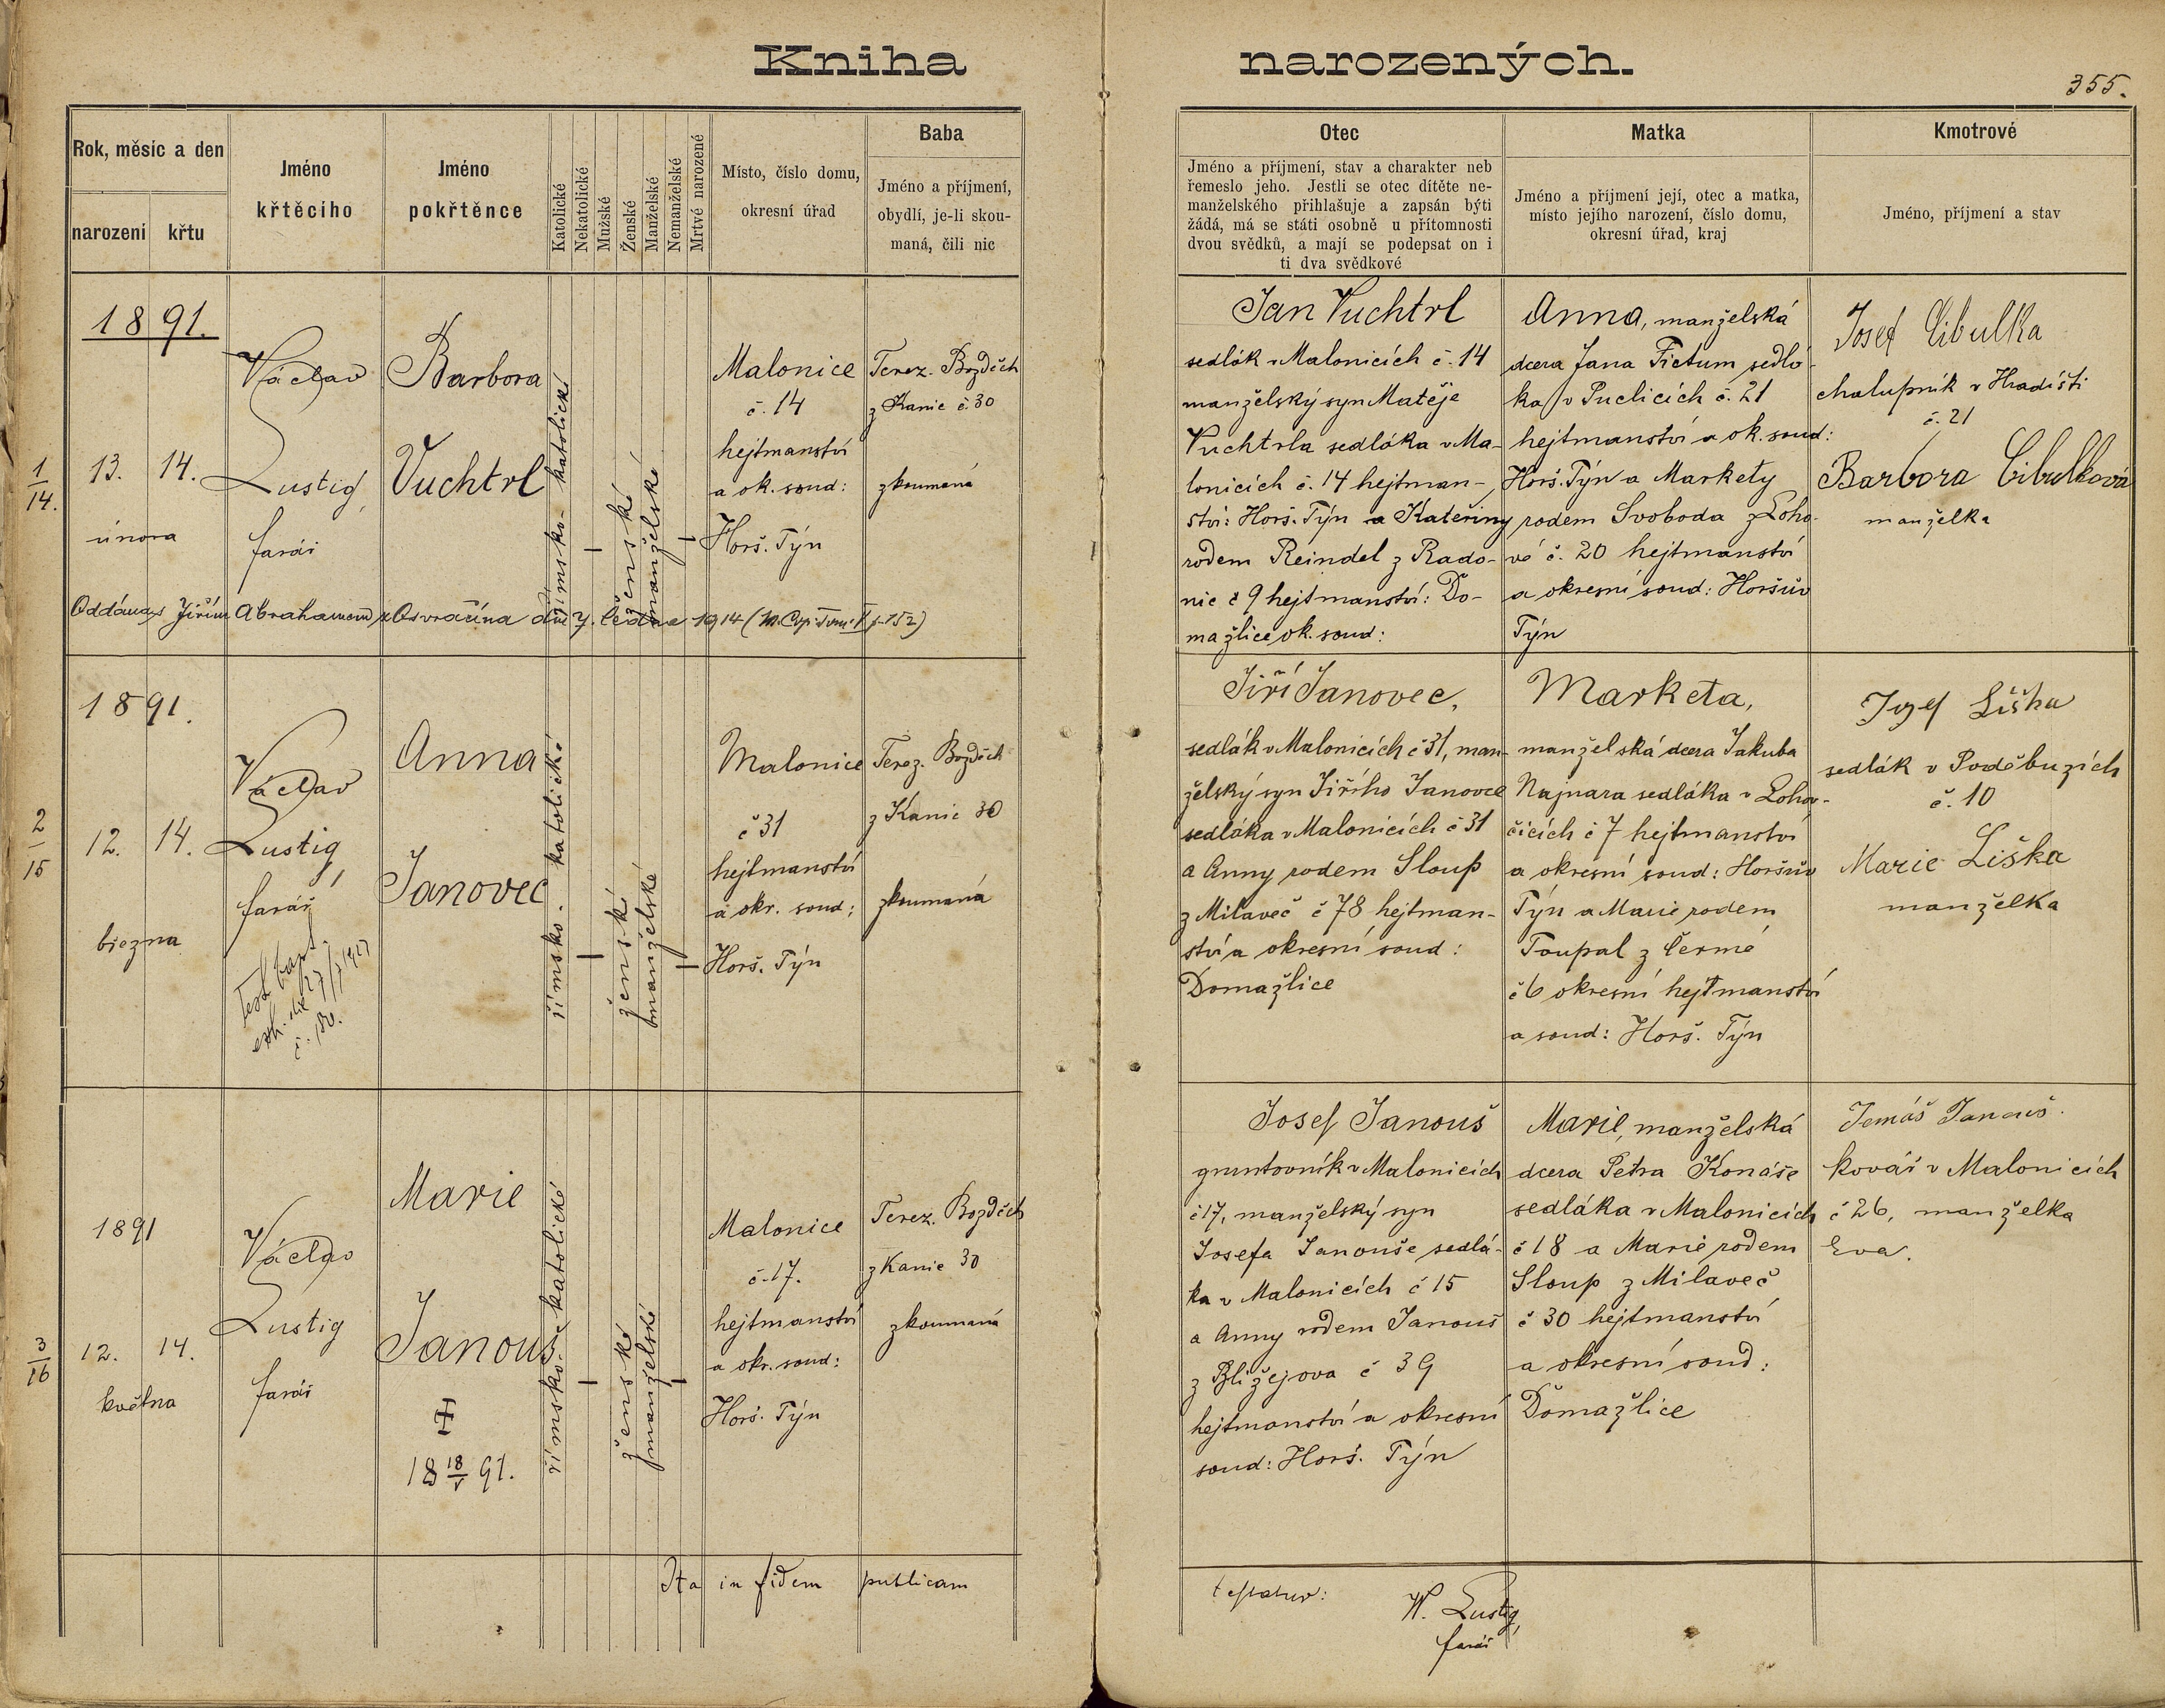 Kniha narozených.
355.
Rok, měsíc a den
narození
křtu
Jméno
křtěcího
Jméno
pokřtěnce
Katolické
Nekatolické
Mužské
Ženské
Manželské
Nemanželské
Mrtvé narozené
Místo, číslo domu,
okresní úřad
Baba
Jméno a příjmení,
obydlí, je-li skou-
maná, čili nic
Otec
Jméno a příjmení, stav a charakter neb
řemeslo jeho. Jestli se otec dítěte ne-
manželského přihlašuje a zapsán býti
žádá, má se státi osobně u přítomnosti
dvou svědků, a mají se podepsat on i
ti dva svědkové
Matka
Jméno a příjmení její, otec a matka,
místo jejího narození, číslo domu,
okresní úřad, kraj
Kmotrové
Jméno, příjmení a stav
1
14.
1891.
13. 14.
února
Václav
Lustig,
farář
Barbora
Vuchtrl
římsko-katolické
ženské
manželské
Malonice
č. 14
hejtmanství
a ok. soud:
Horš. Týn
Terez. Bozděch
z Kanic č. 30
zkoumaná
Oddána s Jiřím Abrahamem z Osvračína dne 7. ledna 1914
Jan Vuchtrl
sedlák v Malonicích č. 14
manželský syn Matěje
Vuchtrla sedláka v Ma-
lonicích č. 14 hejtman-
ství: Horš. Týn a Kateřiny
rodem Reindel z Rado-
nic č 9 hejtmanství: Do-
mažlice ok. soud:
Anna, manželská
dcera Jana Fictum sedlá-
ka v Puclicích č. 21
hejtmanství a ok. soud:
Horš. Týn a Markety
rodem Svoboda z Loho-
vé č. 20 hejtmanství
a okresní soud: Horšův
Týn
Josef Cibulka
chalupník v Hradišti
č. 21
Barbora Cibulková
manželka
2
15
1891.
12. 14.
března
Václav
Lustig,
farář
Anna
Janovec
římsko-katolické
ženské
manželské
Malonice
č 31
hejtmanství
a okr. soud:
Horš. Týn
Terez. Bozděch
z Kanic 30
zkoumaná
Jiří Janovec,
sedlák v Malonicích č 31, man-
želský syn Jiřího Janovce
sedláka v Malonicích č 31
a Anny rodem Sloup
z Milaveč č 78 hejtman-
ství a okresní soud:
Domažlice
Marketa,
manželská dcera Jakuba
Najnara sedláka v Lohov-
čicích č 7 hejtmanství
a okresní soud: Horšův
Týn a Marie rodem
Toupal z Čermé
č 6 okresní hejtmanství
a soud: Horš. Týn
Josef Liška
sedlák v Poděbuzích
č. 10
Marie Liška
manželka
3
16
1891
12. 14.
května
Václav
Lustig
farář
Marie
Janouš
18 18/V 91.
římsko-katolické
ženské
manželské
Malonice
č. 17.
hejtmanství
a okr. soud:
Horš. Týn
Terez. Bozděch
z Kanic 30
zkoumaná
Josef Janouš
gruntovník v Malonicích
č 17, manželský syn
Josefa Janouše sedlá-
ka v Malonicích č 15
a Anny rodem Janouš
z Blížejova č 39
hejtmanství a okresní
soud: Horš. Týn
Marie, manželská
dcera Petra Konáše
sedláka v Malonicích
č 18 a Marie rodem
Sloup z Milaveč
č 30 hejtmanství
a okresní soud:
Domažlice
Tomáš Janouš.
kovář v Malonicích
č 26, manželka
Eva.
Ita in fidem publicam
testatur:
W. Lustig,
farář